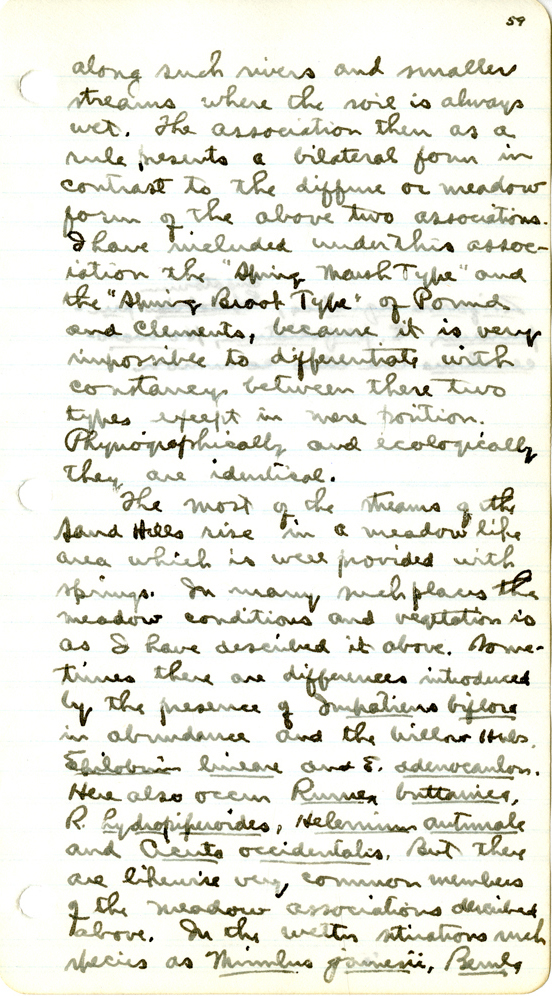 59
along such rivers and smaller
streams where the soil is always
wet. The association then as a
rule presents a bilateral form in
contrast to the diffuse or meadow
form of the above two associations.
I have included under this assoc-
iation the "Spring Marsh Type" and
the "Spring Brook Type" of Pound
and Clements, because it is very
impossible to differentiate with
constancy between these two
types except in mere position.
Physiographically and ecologically
they are identical.
The most of the streams of the
Sand Hills rise in a meadow like
area which is well provided with
springs. In many such places the
meadow conditions and vegetation is
as I have described it above. Some-
times there are differences introduced
by the presence of Impatiens biflora
in abundance and the Willow Herbs.
Epilobium lineare and E. adenocaulon.
Here also occur Rumex brittanica,
R. hydropiperoides, Helenium autumnale
and Cicuta occidentalis. But they
are likewise very common members
of the meadow associations described
above. In the wetter situations such
species as Mimulus jamesii, Berula